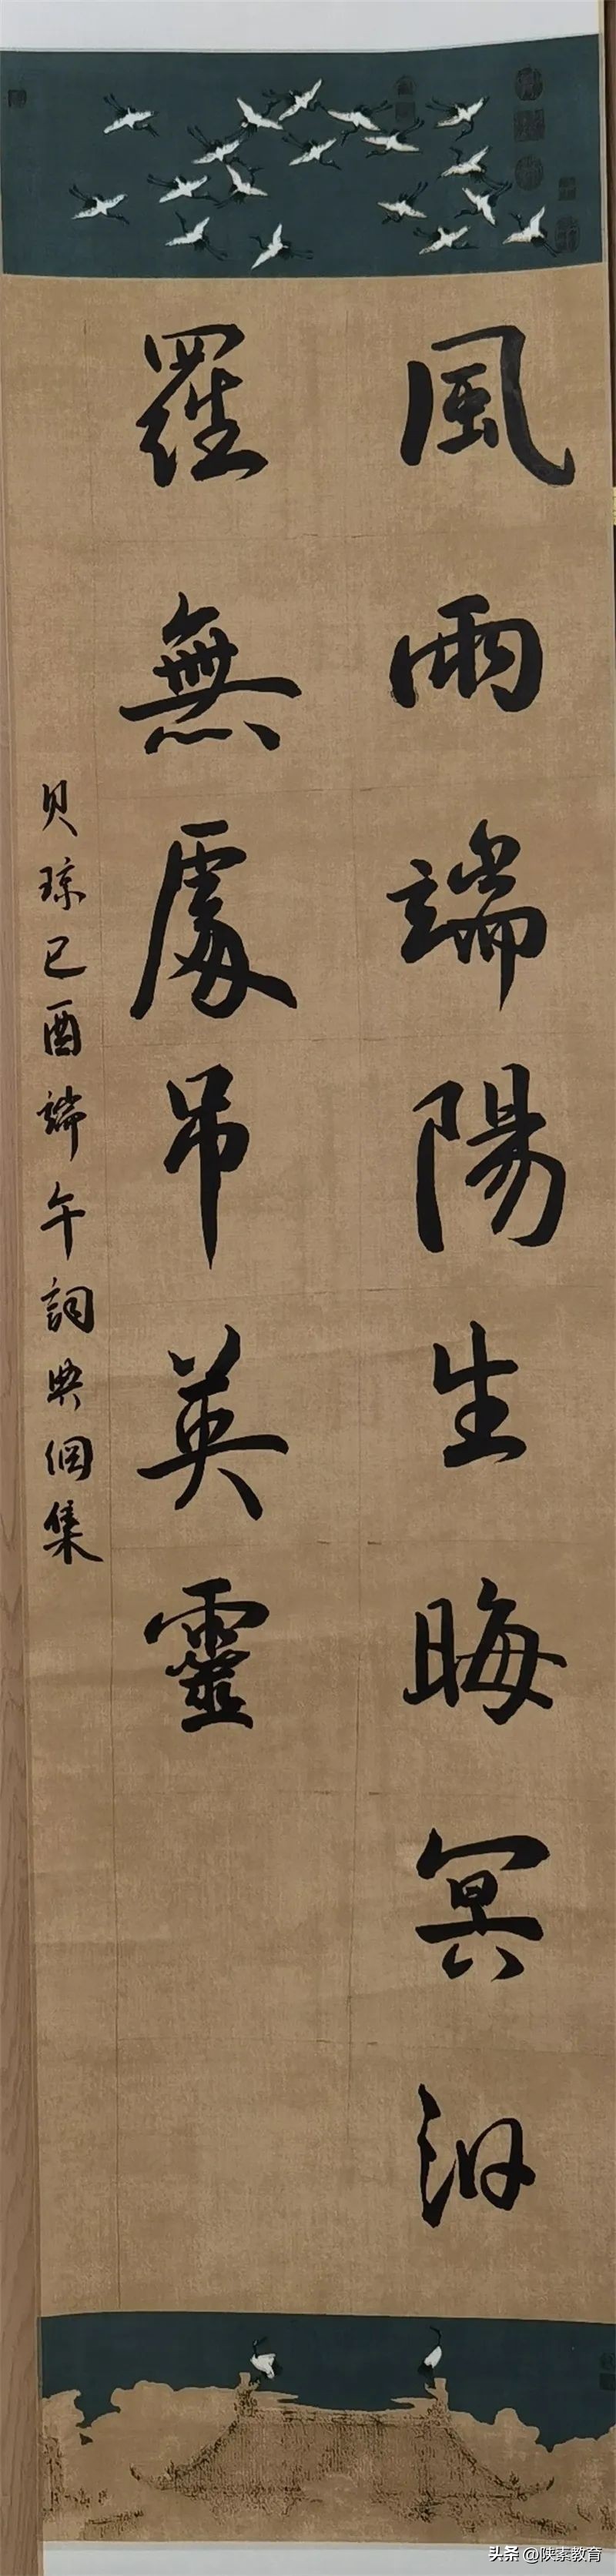 風雨端陽生晦冥汨
羅無處吊英靈
贝琼己酉端午詞典網集
头条 @陕素教育